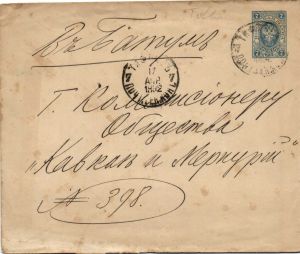 Въ Батумъ
17
АПР.
1892
7
Г. Коммиссіонеру
Общества
„Кавказъ и Меркурій"
№ 398.